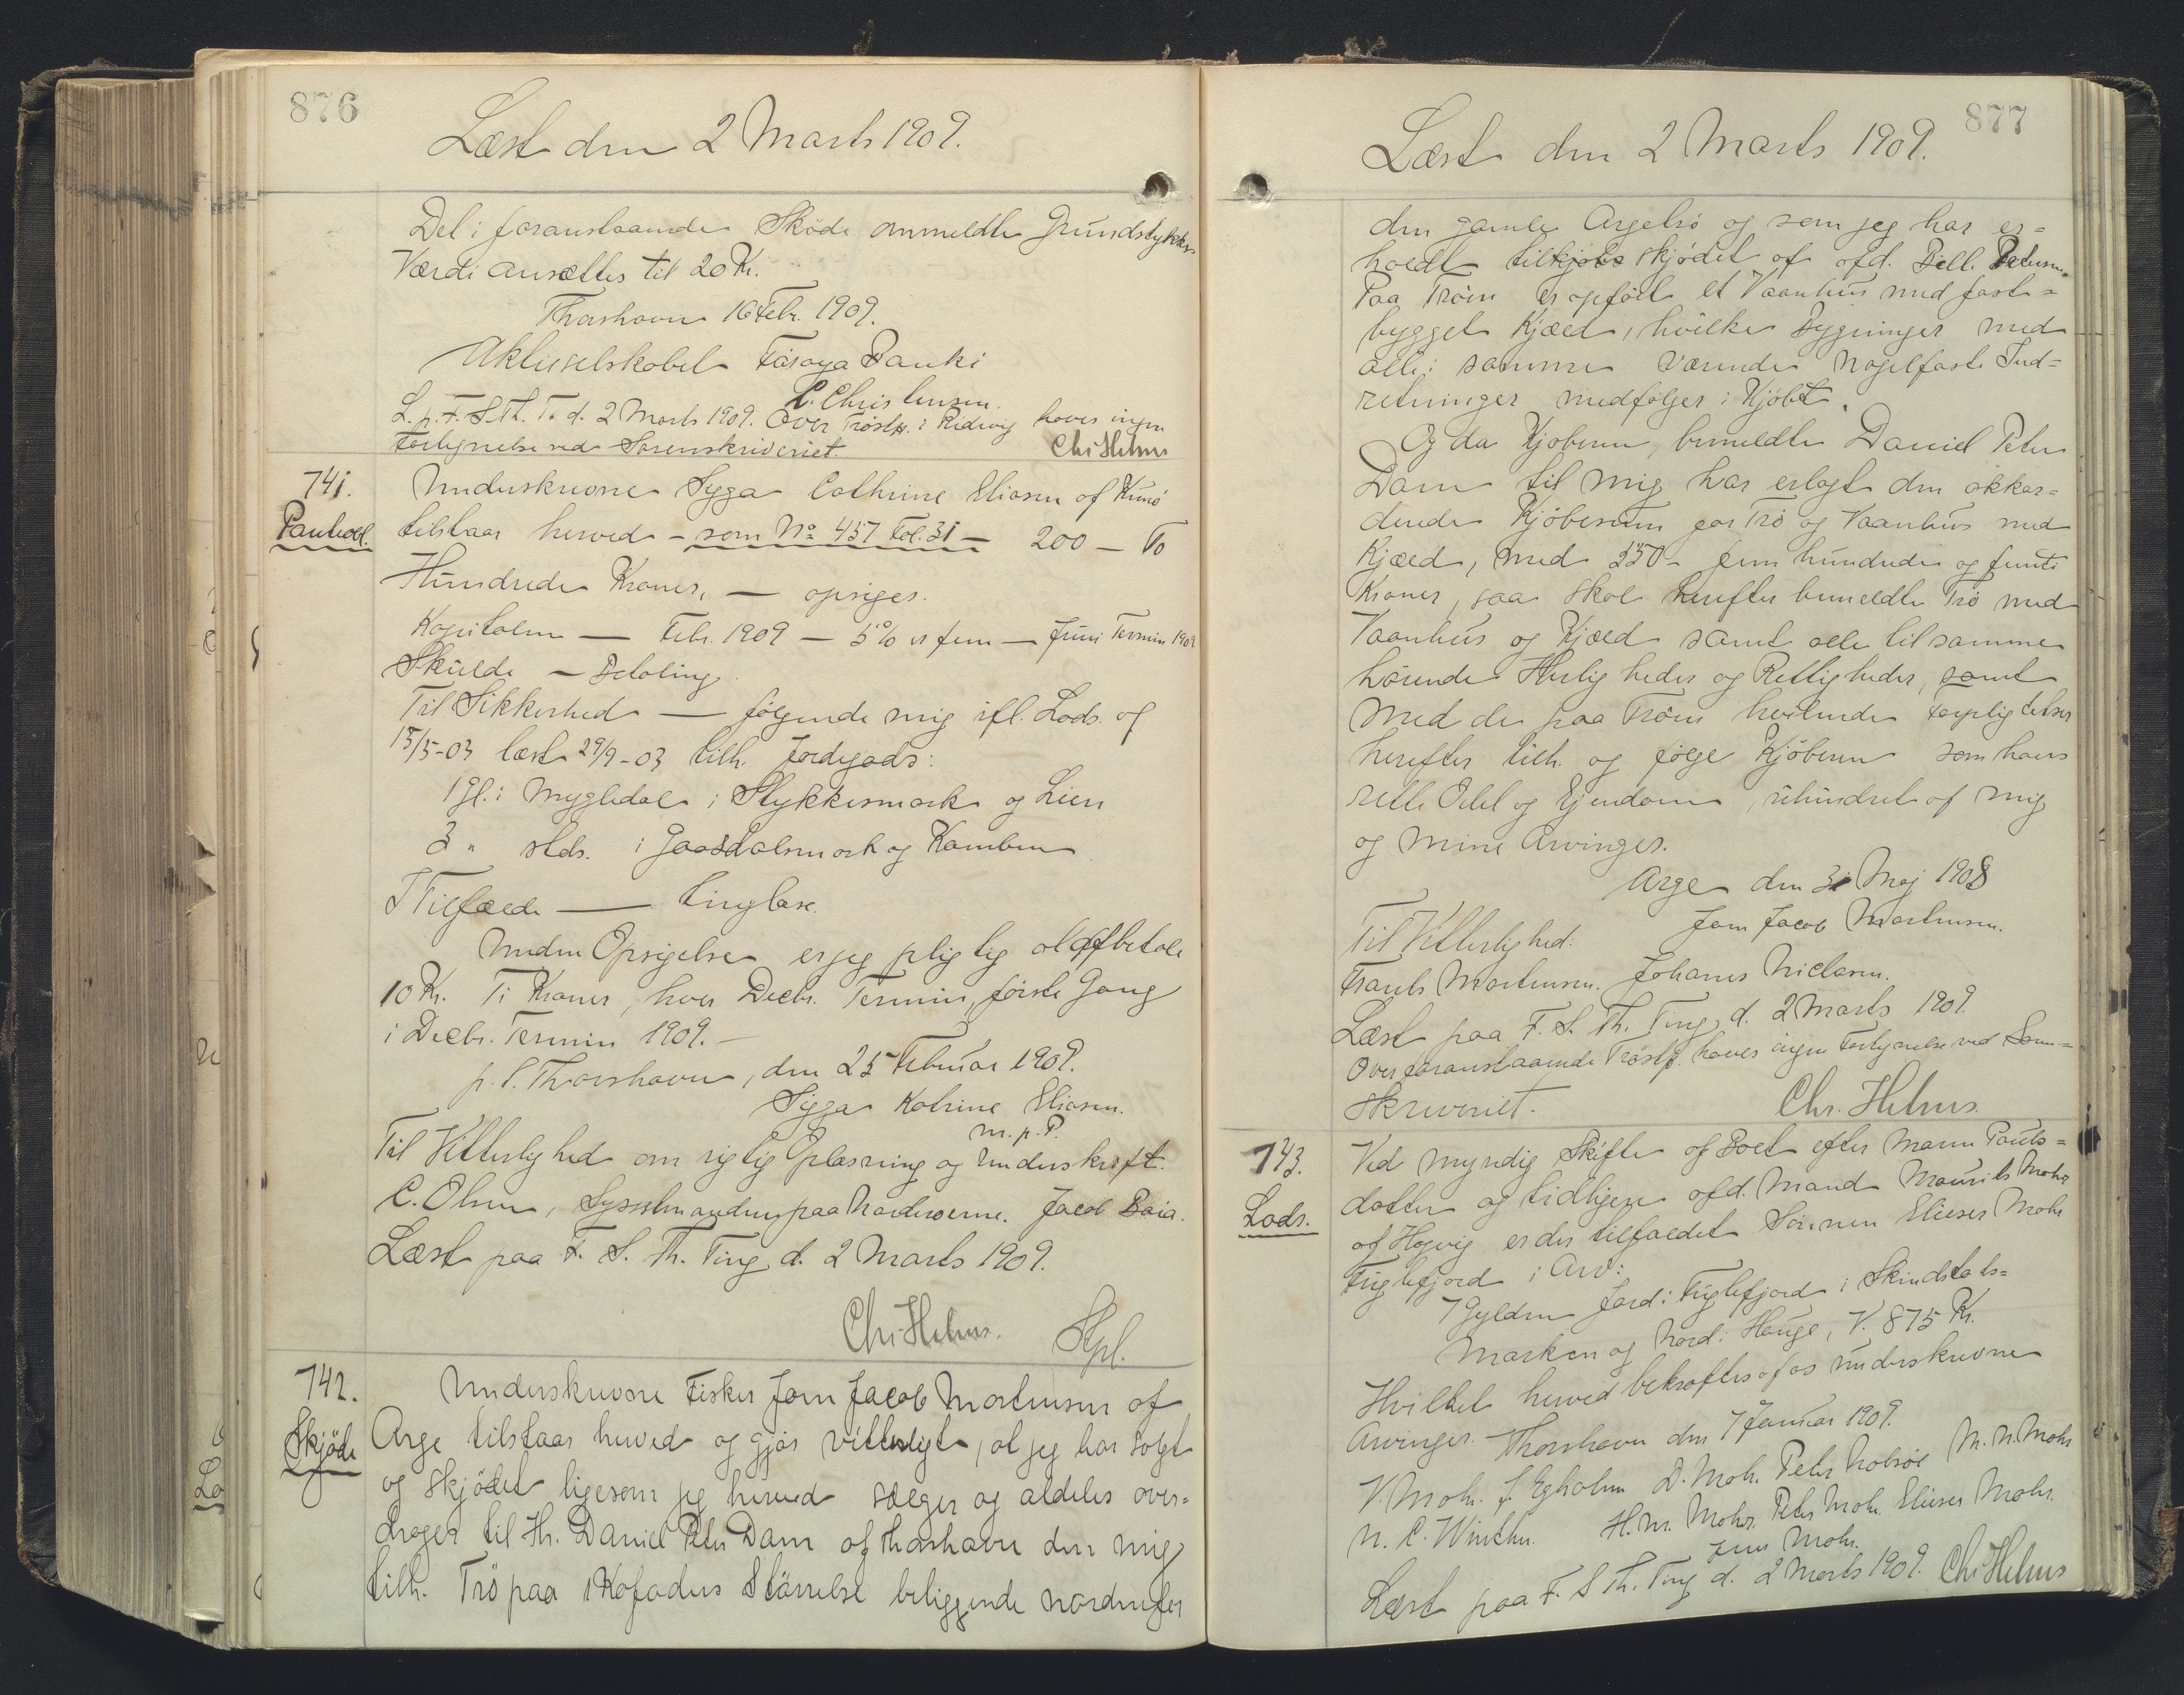 876
Læst den 2 Marts 1909.
Det i foranstaaende Skøde ommeldte Grundstykkes
Værdi ansættes til 20 Kr.
Thorshavn 16 Febr. 1909.
Aktieselskabet Føroya Banki
C. Christensen.
L. p. F. S. Th. T. d. 2 Marts 1909. Over Trøstk. i haves ingen
Forlignelse ved Sorenskriveriet
Chr. Helms
741.
Panteobl.
Underskrevne Sygga Cathrine Eliasen af Kunø
tilstaar herved – som No 457 Fol. 31 – 200 – To
Hundrede Kroner, — opsiges.
Kapitalen — Febr. 1909 — 5% er fem — Juni Termin 1909
Skulde – Betaling
Til Sikkerhed — følgende mig ifl. Lods. og
15/5-03 læst 29/9-03 tilh. Jordegods:
1 Gl. i Mygledal i Stykkesmark og Lien
3 " stds. i Gaasdalsmark og Kamben
I Tilfælde — tinglæse.
Uden Opsigelse er jeg pligtig at afbetale
10 Kr. Ti Kroner, hver Decbr. Termin, første Gang
i Decbr. Termin 1909. –
p. t. Thorshavn, den 25 Februar 1909.
Sigga Katrine Eliasen.
m. p. P.
Til Vitterlighed om rigtig Oplæsning og Underskrift.
C. Olsen, Sysselmanden paa Norderøerne. Jacob Baia.
Læst paa F. S. Th. Ting d. 2 Marts 1909.
Chr. Helms. Stpl.
742.
Skjöde
Underskrevne Fisker Jom Jacob Mortensen af
Arge tilstaar herved og gjør vitterligt, at jeg har solgt
og skjödet ligesom jeg herved sælger og aldeles over=
drager til Hr. Daniel Peter Dam af Thorshavn den mig
tilh. Trö paa 1 Kofoders Størrelse beliggende nordenfor
877
Læst den 2 Marts 1909.
den gamle Argetrö og som jeg har er=
holdt tilkjöbs skjødet af afd. Petersen.
Paa Trøen er opført et Vaanhus med fast=
bygget Kjæld, hvilke Bygninger med
alle i samme værende nagelfaste Ind=
retninger medfølger i Kjøbet.
Og da Kjøberen, bemeldte Daniel Peter
Dam til mig har erlagt den akkor=
derede Kjøbesum for Trö og Vaanhus med
Kjæld, med 550 – fem hundrede og femti
Kroner, saa skal herefter bemeldte Trö med
Vaanhus og Kjæld samt alle til samme
hørende Herligheder og Rettigheder, samt
med de paa Trøen hvilende Forpligtelser
herefter tilh. og følge Kjøberen som hans
rette Odel og Ejendom, uhindret af mig
og mine Arvinger.
Arge den 31 Maj 1908
Jom Jacob Mortensen.
Til Vitterlighed:
Frants Mortensen. Johannes Niclasen.
Læst paa F. S. Th. Ting d. 2 Marts 1909.
Over foranstaaende Trøstk. haves ingen Forlignelse ved Soren=
skriveriet.
Chr. Helms.
743.
Lods.
Ved myndig Skifte af Boet efter Maren Pouls=
datter og tidligere afd. Mand Mourits Mohr
af Hogvig er der tilfaldet Sönnen Elieser Mohr
Fuglefjord i Arv:
7 Gylden Jord i Fuglefjord i Skindstots=
marken og Nord i Hauge, V. 875 Kr.
Hvilket herved bekræftes af os underskrevne
Arvinger. Thorshavn den 7 Januar 1909.
V. Mohr. J. Egholm D. Mohr. Peter Nolsøe M. N. Mohr
N. C. Winther. H. M. Mohr. Peter Mohr. Elieser Mohr.
Jens Mohr.
Læst paa F. S. Th. Ting d. 2 Marts 1909. Chr. Helms